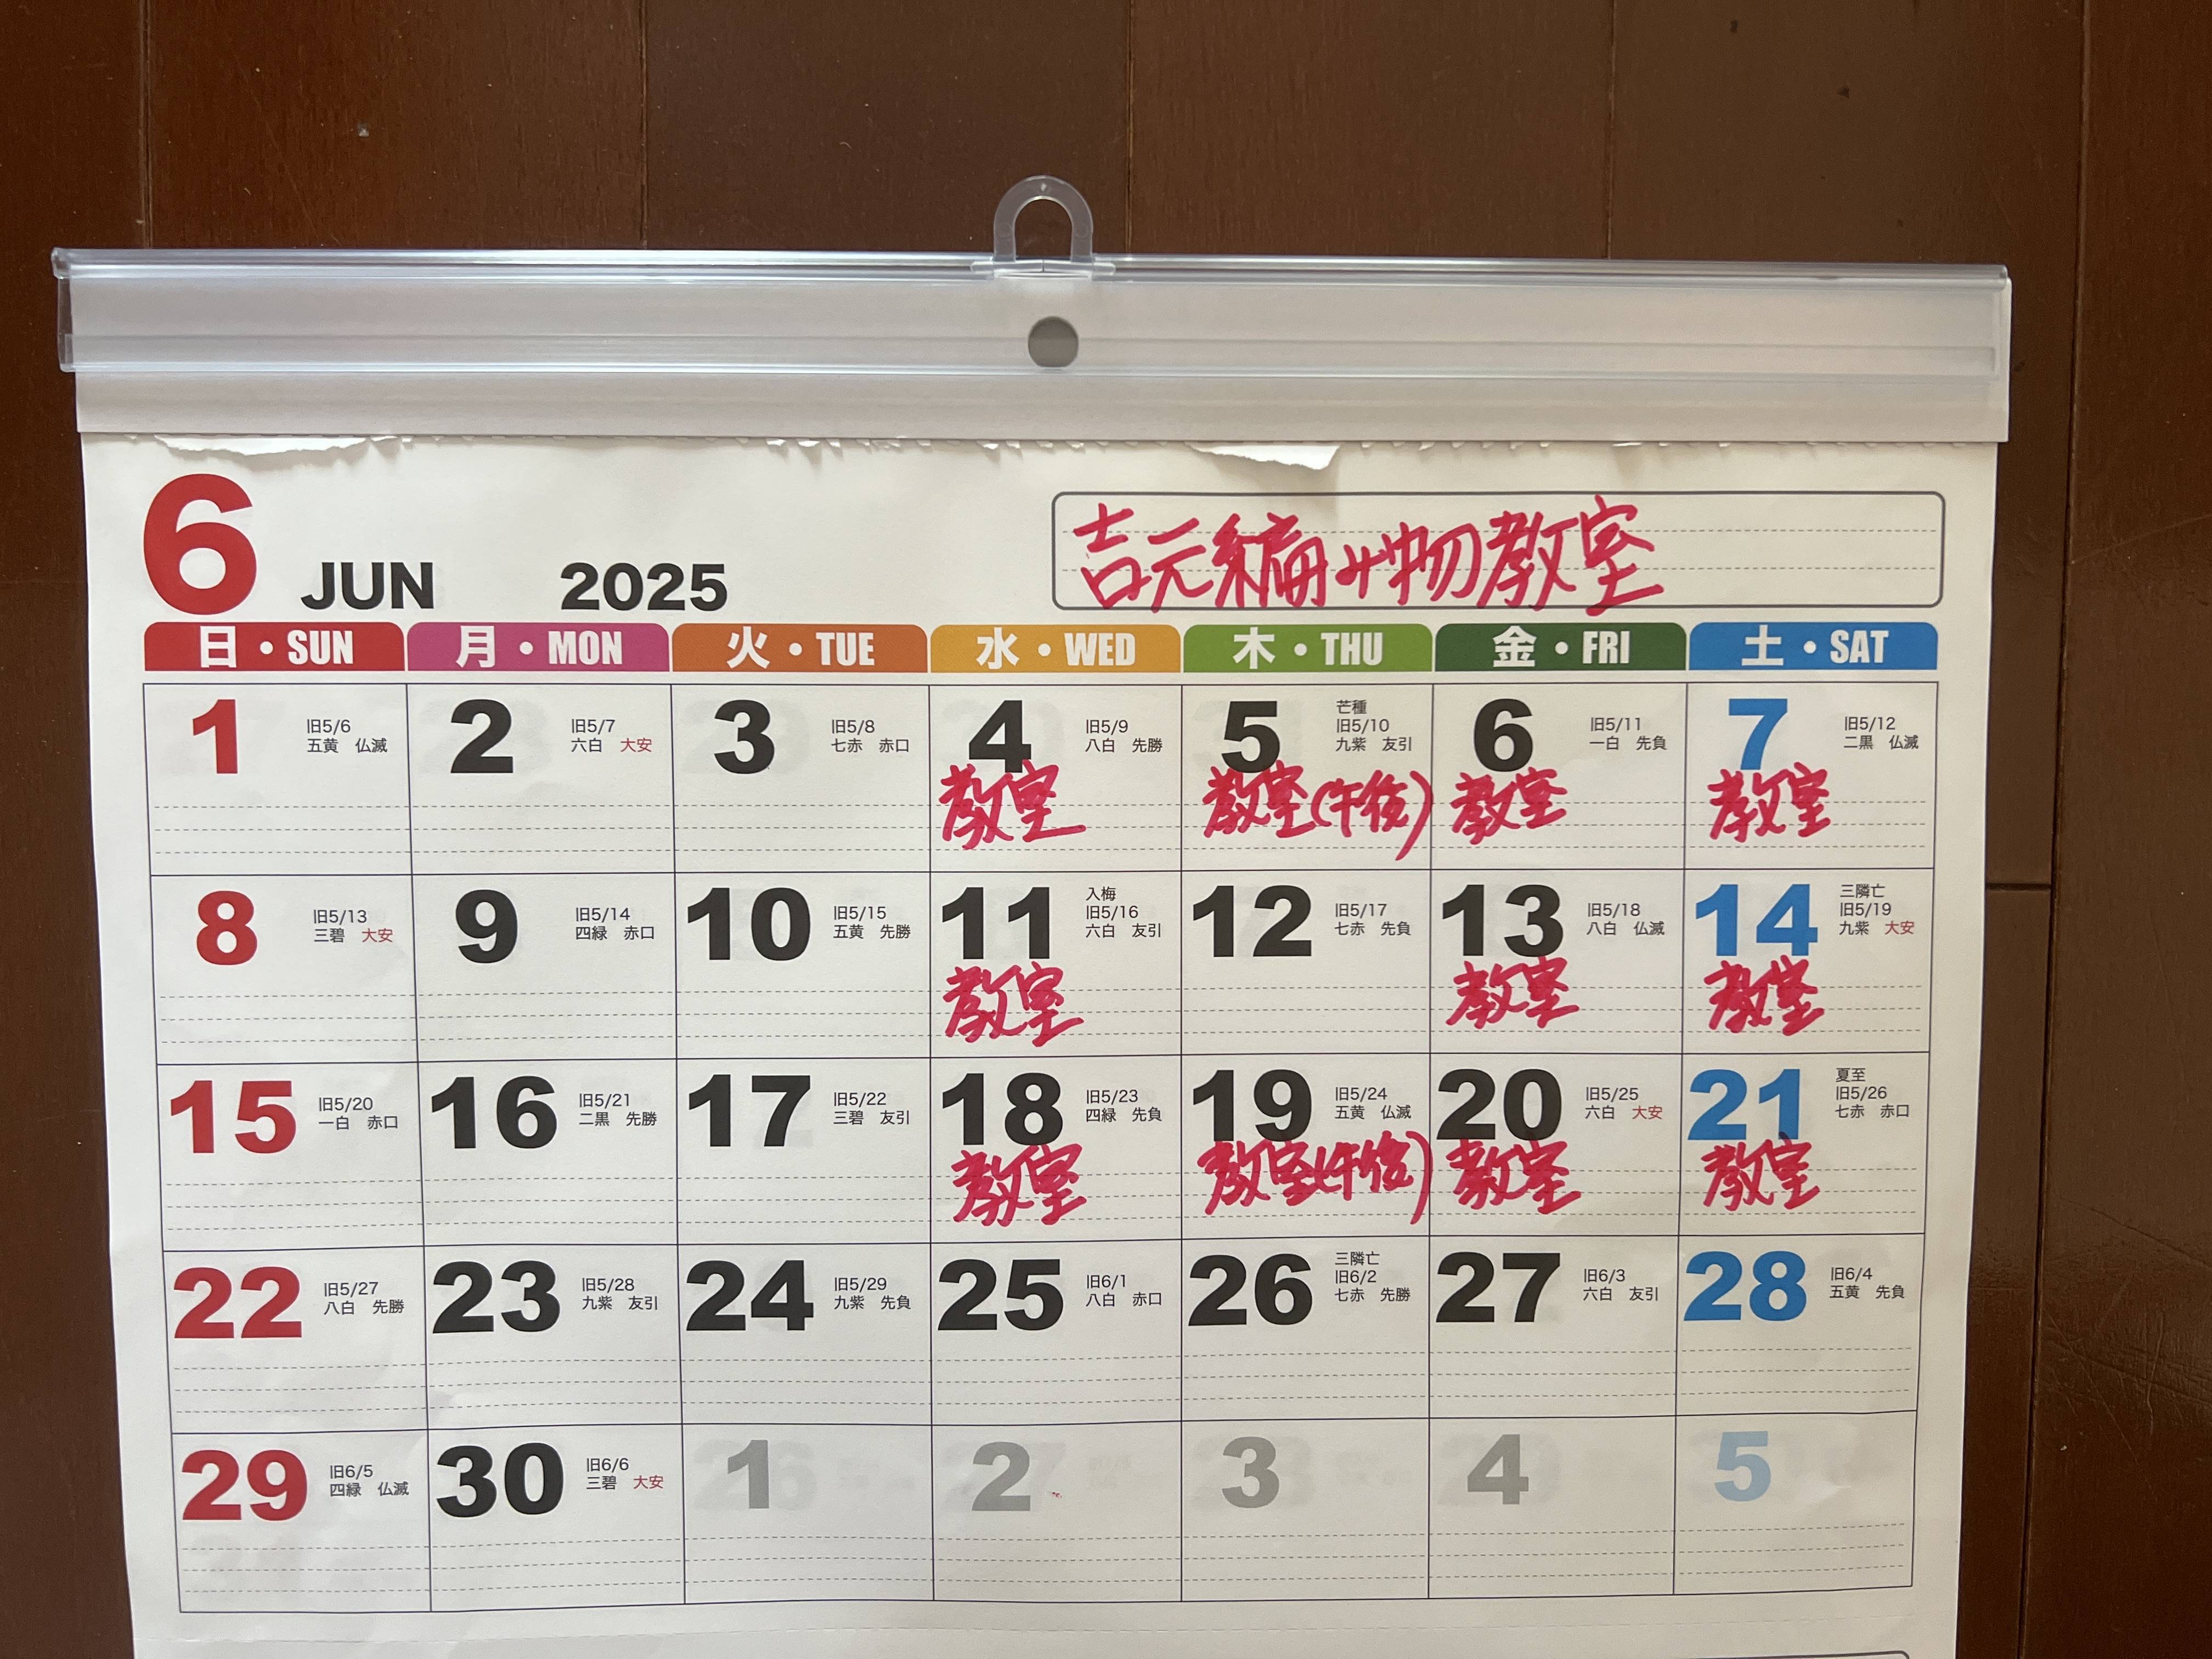 6 JUN 2025
吉元編み物教室
日・SUN 月・MON 火・TUE 水・WED 木・THU 金・FRI 土・SAT
1 旧5/6 五黄 仏滅
2 旧5/7 六白 大安
3 旧5/8 七赤 赤口
4 旧5/9 八白 先勝
教室
5 芒種 旧5/10 九紫 友引
教室(午後)
6 旧5/11 一白 先負
教室
7 旧5/12 二黒 仏滅
教室
8 旧5/13 三碧 大安
9 旧5/14 四緑 赤口
10 旧5/15 五黄 先勝
11 入梅 旧5/16 六白 友引
教室
12 旧5/17 七赤 先負
13 旧5/18 八白 仏滅
教室
14 三隣亡 旧5/19 九紫 大安
教室
15 旧5/20 一白 赤口
16 旧5/21 二黒 先勝
17 旧5/22 三碧 友引
18 旧5/23 四緑 先負
教室
19 旧5/24 五黄 仏滅
教室(午後)
20 旧5/25 六白 大安
教室
21 夏至 旧5/26 七赤 赤口
教室
22 旧5/27 八白 先勝
23 旧5/28 九紫 友引
24 旧5/29 九紫 先負
25 旧6/1 八白 赤口
26 三隣亡 旧6/2 七赤 先勝
27 旧6/3 六白 友引
28 旧6/4 五黄 先負
29 旧6/5 四緑 仏滅
30 旧6/6 三碧 大安
1
2
3
4
5